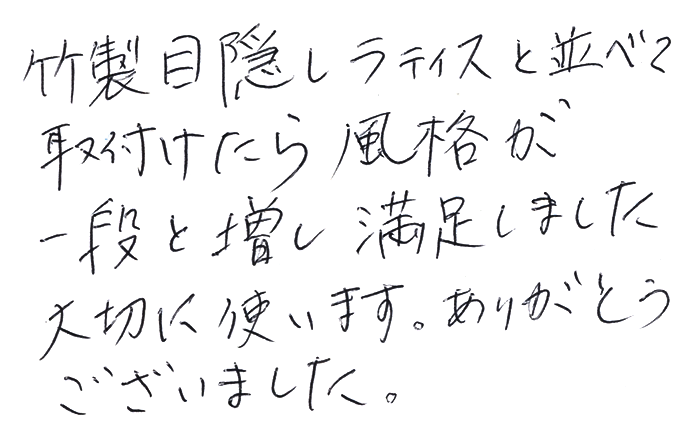 竹製目隠しラティスと並べて
取付けたら風格が
一段と増し満足しました
大切に使います。ありがとう
ございました。